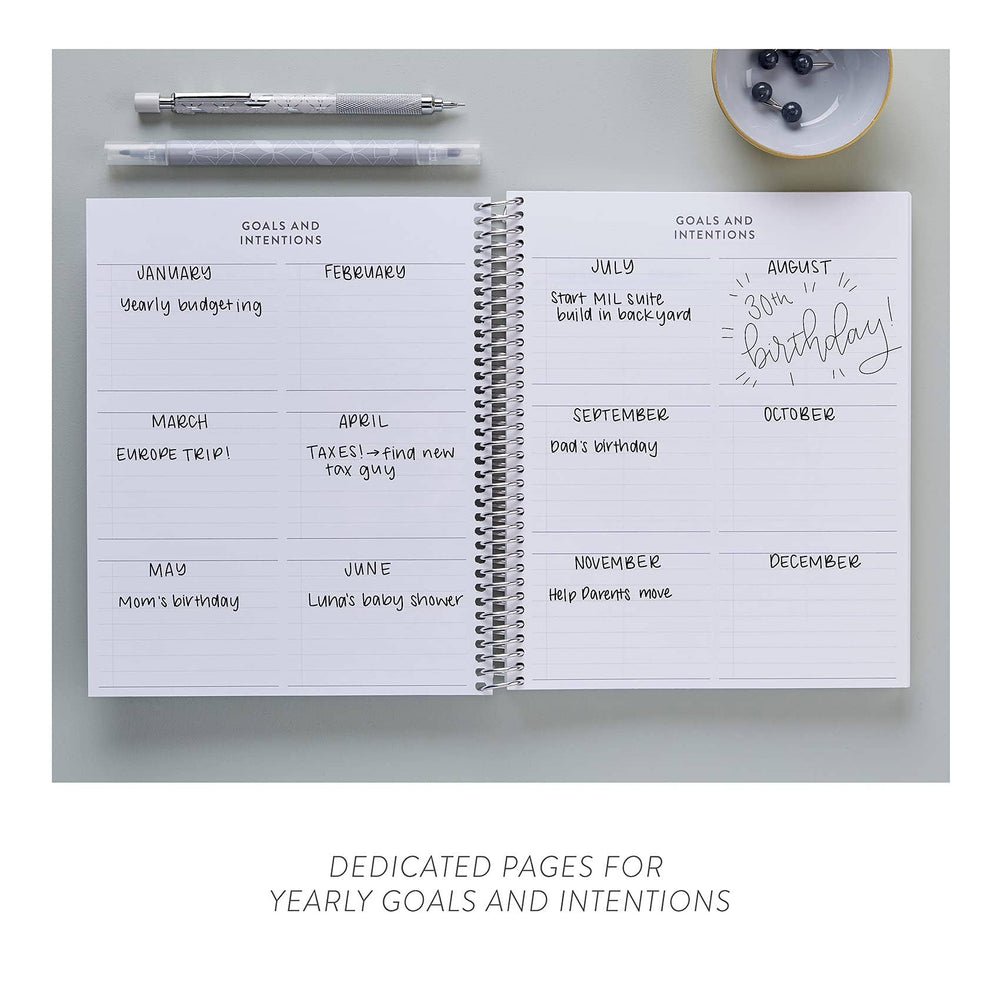 GOALS AND
INTENTIONS
JANUARY
Yearly budgeting
FEBRUARY
MARCH
EUROPE TRIP!
APRIL
TAXES!→find new
tax guy
MAY
Mom's birthday
JUNE
Luna's baby shower
GOALS AND
INTENTIONS
JULY
Start MIL suite
build in backyard
AUGUST
30th
birthday!
SEPTEMBER
Dad's birthday
OCTOBER
NOVEMBER
Help Parents move
DECEMBER
DEDICATED PAGES FOR
YEARLY GOALS AND INTENTIONS